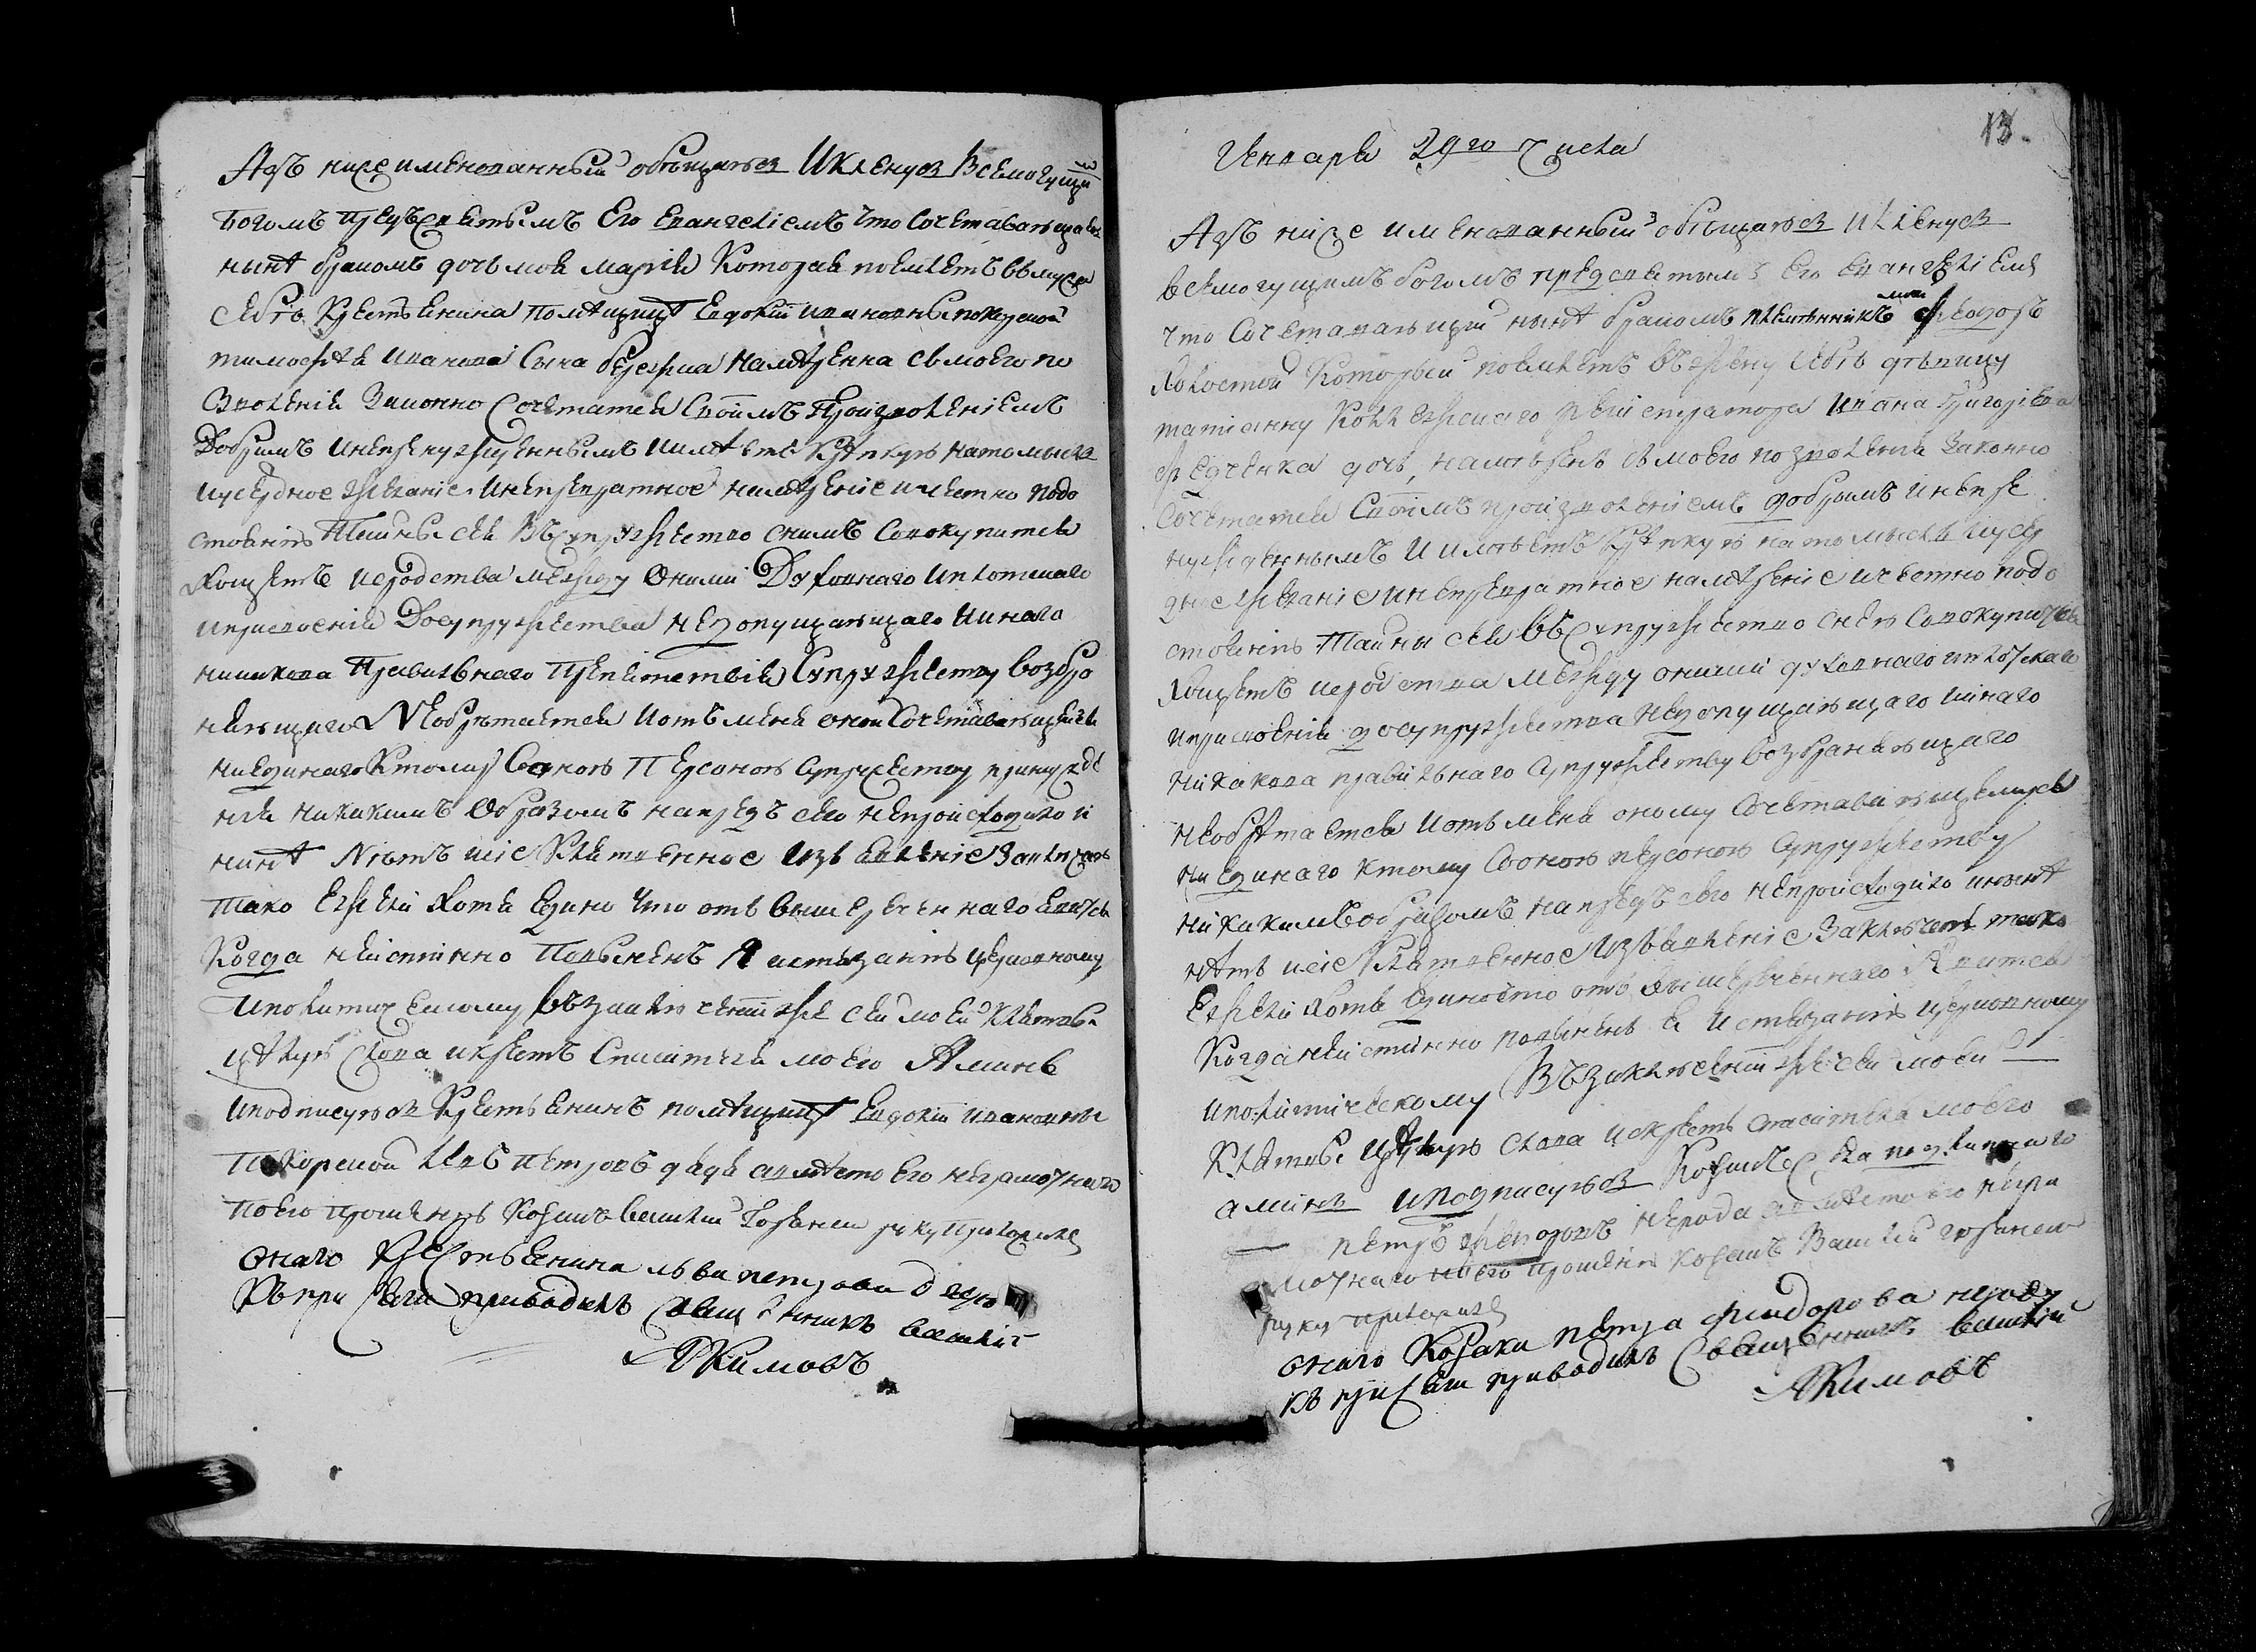 Азъ нижеименованный обѣщаюся И кленуся Всемогущи
Богомъ предъ святымъ Его Евангелiемъ что Сочетавающаяся
нынѣ бракомъ дочь моя марiя Которая поемлетъ въ мужа
себѣ Крестьянина помѣщицѣ Евдокiи ивановны покорской
тимофѣя иванова Сына намѣренна съ моего по
зволенiя Законно Сочетатся Своимъ Произволенiемъ
Добрымъ и непринужденнымъ и имѣетъ крѣпкую на то мысль
и усердное желанiе и непревратное намѣренiе и честно подо
стоянiю Тайны сея Въ супружество снимъ Совокупится
хощетъ и сродства между оними Духовнаго и плотскаго
и присвоенiя До супружества недопущающаго и инаго
никакова Правильнаго Препятствiя Супружеству возбра
няющаго Необрѣтается и отъ мене оной Сочетавающейся
ни единаго Ктому Со оною Персоною супружеству принужде
нiя никакимъ Образомъ напредъ сего непроисходило и
нинѣ Нѣтъ и сiе Клятвенное изъявленiе Заключаю
тако Ежели хотя Едино что отъ вышереченнаго явится
Когда неистинно Повиненъ Я истязанiю церковному
и политическому въ заключенiи же сея моей клятвы
цѣлую слова и крестъ Спасителя моего Аминь
и подписуюся Крестьянинъ помѣщицѣ Евдокiи ивановны
Покорской левъ петровъ дядя а вмѣсто его неграмотнаго
по его прошенiю Козакъ василiй руку приложилъ
онаго Крестьянина льва петрова
Къ присяги приводилъ Священникъ василiй
Якимовъ

13.
Генваря 29го числа
Азъ нижеименованный обѣщаюся и кленуся
всемогущимъ богомъ предсвятымъ его евангелiемъ
что Сочетавающiй нынѣ бракомъ племянникъ мой Феодоръ
холостой Который поемлетъ въ жену себѣ дѣвицу
татiанну Коллежскаго регистратора Ивана Григорiева
Федченка дочь, намѣренъ съ моего позволенiя законно
Сочетатся Своимъ произволенiемъ добрымъ и непри
нужденнымъ И имѣетъ крѣпкую на то мысль и усер
дное желанiе и непревратное намѣренiе и честно подо
стоянiю Тайны сея въ супружество снею Совокупится
хощетъ и сродства между оними духовнаго и плотскаго
и присвоенiя до супружества недопущающаго и инаго
никакова правильнаго супружеству возбраняющаго
необрѣтается и отъ мене оному Сочетавающемуся
ни единаго ктому Со оною персоною супружеству
никакимъ образомъ напредъ сего непроисходило и нынѣ
нѣтъ и сiе Клятвенное Изъявленiе Заключаю тако
Ежели хотя едино что отъ вышереченнаго Явится
Когда неистинно повиненъ я истязанiю церковному
и политическому Въ заключенiи же сея моей
Клятвы цѣлую слова и крестъ спасителя моего
аминь и подписуюся Козакъ
петръ а вмѣсто его негра
мотнаго по его прошенiю козакъ Василiй
руку приложилъ
онаго Козака петра фиодорова
къ присяги приводилъ Священникъ василiй
Якимовъ